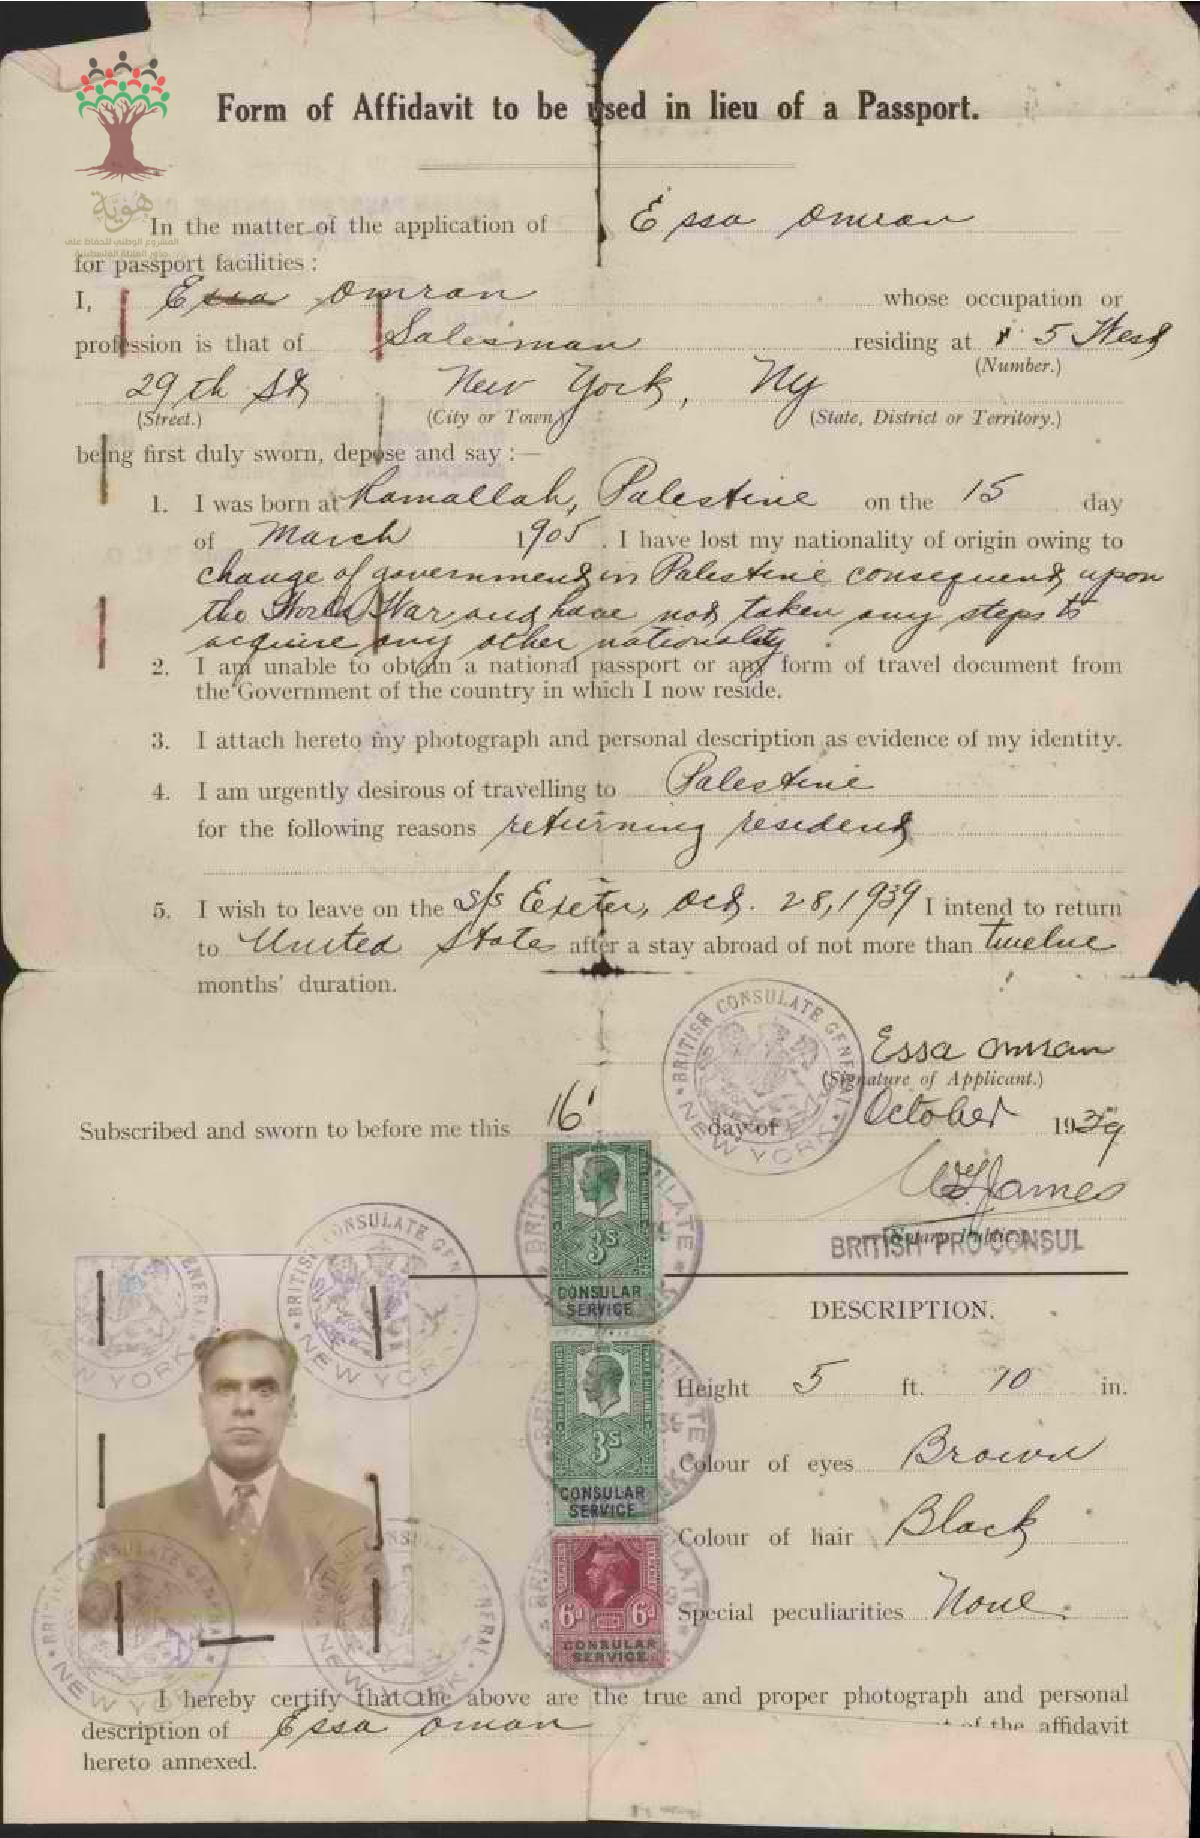 Form of Affidavit to be used in lieu of a Passport.
هوية
المشروع الوطني للحفاظ على
جذور العائلة الفلسطينية
In the matter of the application of Essa Omran
for passport facilities :
I, Essa Omran whose occupation or
profession is that of Salesman residing at 5 West
(Number.)
29th St New York, Ny
(Street.) (City or Town) (State, District or Territory.)
being first duly sworn, depose and say :—
1. I was born at Ramallah, Palestine on the 15 day
of March 1905. I have lost my nationality of origin owing to
change of government in Palestine consequent upon
the World War and have not taken any steps to
acquire any other nationality.
2. I am unable to obtain a national passport or any form of travel document from
the Government of the country in which I now reside.
3. I attach hereto my photograph and personal description as evidence of my identity.
4. I am urgently desirous of travelling to Palestine
for the following reasons returning resident
5. I wish to leave on the s/s Exeter, Oct. 28, 1939 I intend to return
to United States after a stay abroad of not more than twelve
months' duration.
BRITISH CONSULATE GENERAL
NEW YORK
Essa Omran
(Signature of Applicant.)
Subscribed and sworn to before me this 16 day of October 1939
James
(Notary Public)
BRITISH PRO-CONSUL
BRITISH CONSULATE GENERAL
NEW YORK
3s
CONSULAR
SERVICE
3s
CONSULAR
SERVICE
6d 6d
CONSULAR
SERVICE
DESCRIPTION.
Height 5 ft. 10 in.
Colour of eyes Brown
Colour of hair Black
Special peculiarities None.
I hereby certify that the above are the true and proper photograph and personal
description of Essa Oman of the affidavit
hereto annexed.